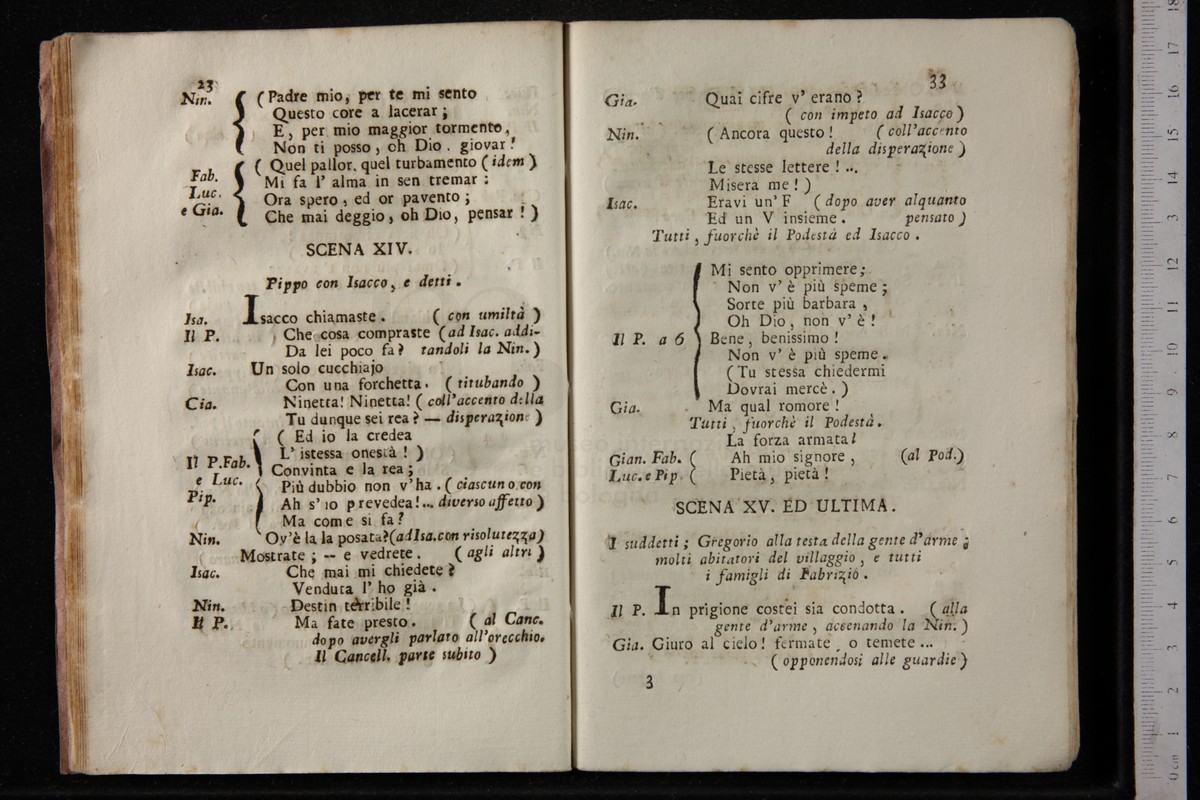 23
Nin. (Padre mio, per te mi sento
Questo core a lacerar;
E, per mio maggior tormento,
Non ti posso, oh Dio. giovar!
Fab. Luc. e Gia. ( Quel pallor, quel turbamento (idem)
Mi fa l' alma in sen tremar:
Ora spero, ed or pavento;
Che mai deggio, oh Dio, pensar!)
SCENA XIV.
Pippo con Isacco, e detti.
Isa. Isacco chiamaste. (con umiltà)
Il P. Che cosa compraste (ad Isac. addi-
Da lei poco fa? tandoli la Nin.)
Isac. Un solo cucchiajo
Con una forchetta. (titubando)
Cia. Ninetta! Ninetta! (coll'accento della
Tu dunque sei rea? — disperazione)
Il P. Fab. e Luc. Pip. ( Ed io la credea
L' istessa onestà!)
Convinta e la rea;
Più dubbio non v'ha. (ciascuno con
Ah s' io prevedea!... diverso affetto)
Ma come si fa?
Nin. Ov'è la la posata?(ad Isa.con risolutezza)
Mostrate; -- e vedrete. (agli altri)
Isac. Che mai mi chiedete?
Venduta l' ho già.
Nin. Destin terribile!
Il P. Ma fate presto. (al Canc.
dopo avergli parlato all'orecchio.
Il Cancell. parte subito)
33
Gia. Quai cifre v' erano?
(con impeto ad Isacco)
Nin. (Ancora questo! (coll'accento
della disperazione)
Le stesse lettere!...
Misera me!)
Isac. Eravi un' F (dopo aver alquanto
Ed un V insieme. pensato)
Tutti, fuorchè il Podestà ed Isacco.
Mi sento opprimere;
Non v' è più speme;
Sorte più barbara,
Oh Dio, non v' è!
Il P. a 6 Bene, benissimo!
Non v' è più speme.
(Tu stessa chiedermi
Dovrai mercè.)
Gia. Ma qual romore!
Tutti, fuorchè il Podestà.
La forza armata!
Gian. Fab. ( Ah mio signore, (al Pod.)
Luc. e Pip ( Pietà, pietà!
SCENA XV. ED ULTIMA.
I suddetti; Gregorio alla testa della gente d'arme;
molti abitatori del villaggio, e tutti
i famigli di Fabrizio.
Il P. In prigione costei sia condotta. (alla
gente d'arme, accenando la Nin.)
Gia. Giuro al cielo! fermate, o temete...
(opponendosi alle guardie)
3